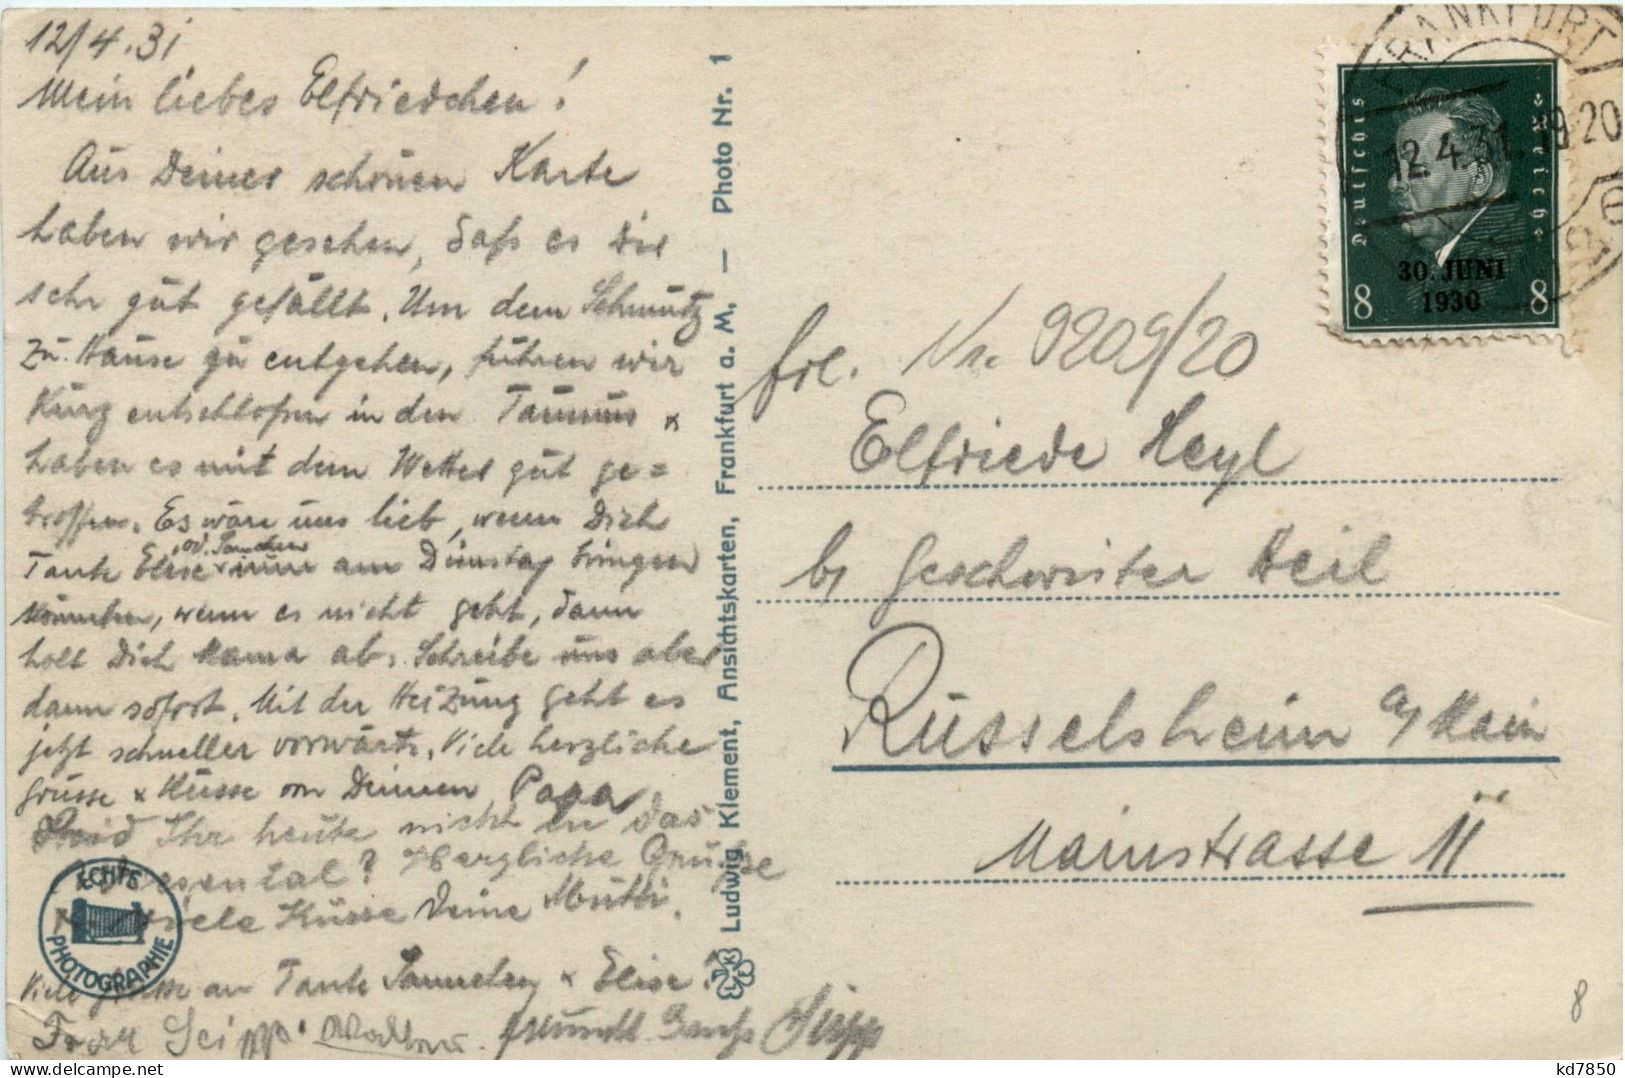 12/4.31
Mein liebes Elfriedchen!
Aus Deiner schönen Karte
haben wir gesehen, daß es Dir
sehr gut gefällt. Um dem Schmutz
zu Hause zu entgehen, fuhren wir
kurz entschloßen in den Taunus x
haben es mit dem Wetter gut ge=
troffen. Es wäre uns lieb, wenn Dich
od. Sannchen
Tante Elise am Dienstag bringen
könnten, wenn es nicht geht, dann
holt Dich Mama ab. Schreibe uns aber
dann sofort. Mit der Heizung geht es
jetzt schneller vorwärts. Viele herzliche
Grüsse x Küsse von Deinem Papa
Seid Ihr heute nicht in das
? Herzliche Grüsse
viele Küsse Deine Mutti.
Viele Grüsse an Tante Sannchen x Elise!
Frau Seipp
Gruß Seipp
ECHTE
PHOTOGRAPHIE
Ludwig Klement, Ansichtskarten, Frankfurt a. M. — Photo Nr. 1
FRANKFURT
12.4.31.19-20
Deutsches Reich
30. JUNI
1930
8 8
Frl. Nr. 9209/20
Elfriede Heyl
b/ Geschwister Heil
Rüsselsheim a/Main
Mainstrasse 11
8
kd7850